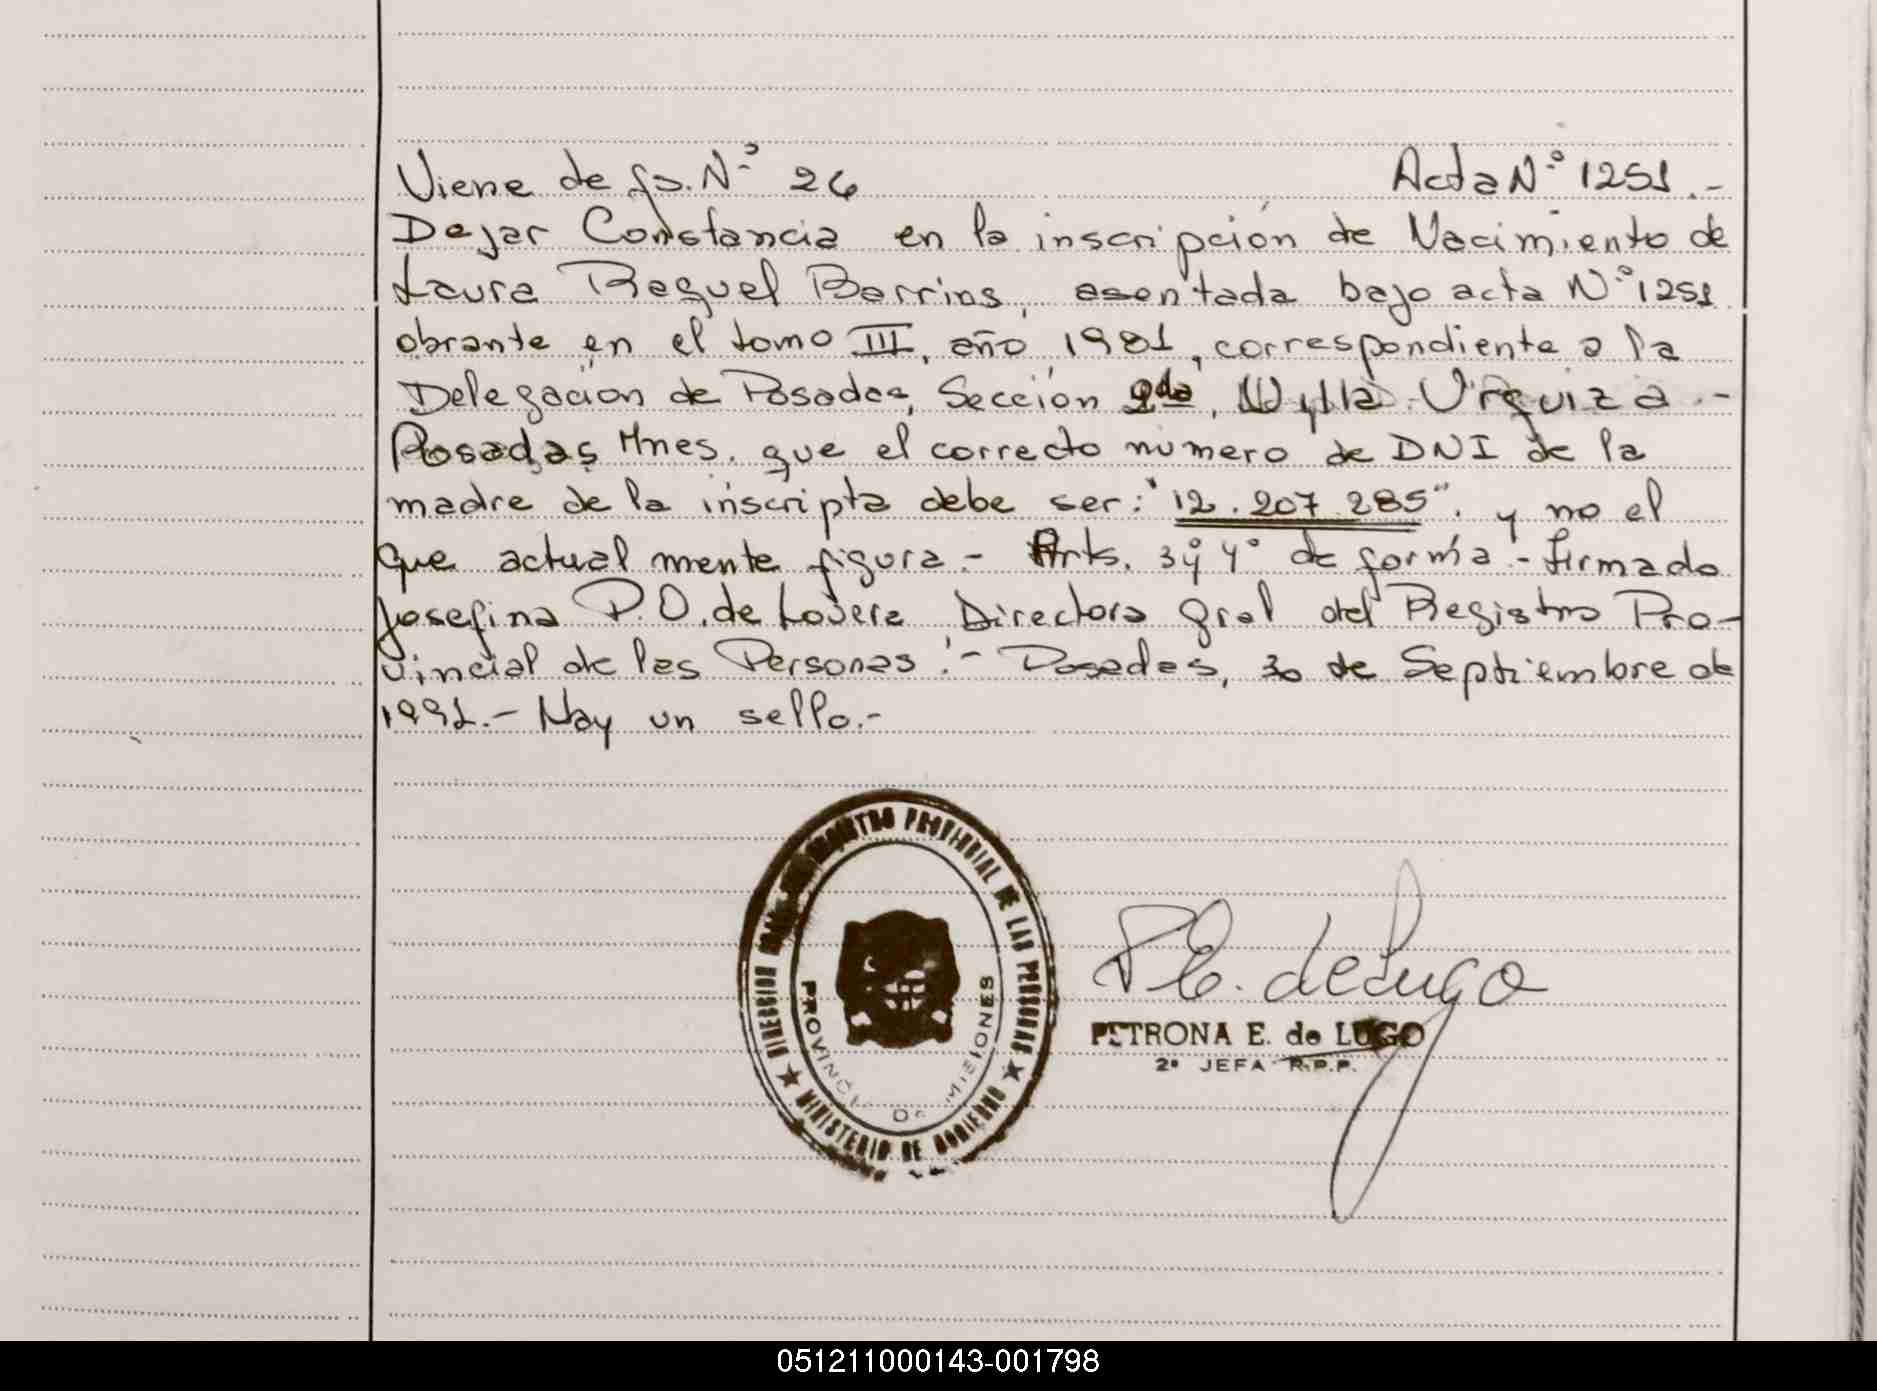 Viene de fs. Nº 26 Acta Nº 1251.-
Dejar Constancia en la inscripción de Nacimiento de
Laura Raquel Barrios, asentada bajo acta Nº 1251
obrante en el tomo III, año 1981, correspondiente a la
Delegación de Posadas, Sección 2da, Villa Urquiza.-
Posadas Mnes. que el correcto número de DNI de la
madre de la inscripta debe ser: "12.207.285". y no el
que actualmente figura.- Arts. 3º y 4º de forma.- firmado
Josefina P.O. de Lovera Directora Gral del Registro Pro-
vincial de las Personas.- Posadas, 30 de Septiembre de
1991.- Hay un sello.-
DIRECCION GRAL. DEL REGISTRO PROVINCIAL DE LAS PERSONAS
MINISTERIO DE GOBIERNO
PROVINCIA DE MISIONES
P E. de Lugo
PETRONA E. de LUGO
2º JEFA R.P.P.
051211000143-001798